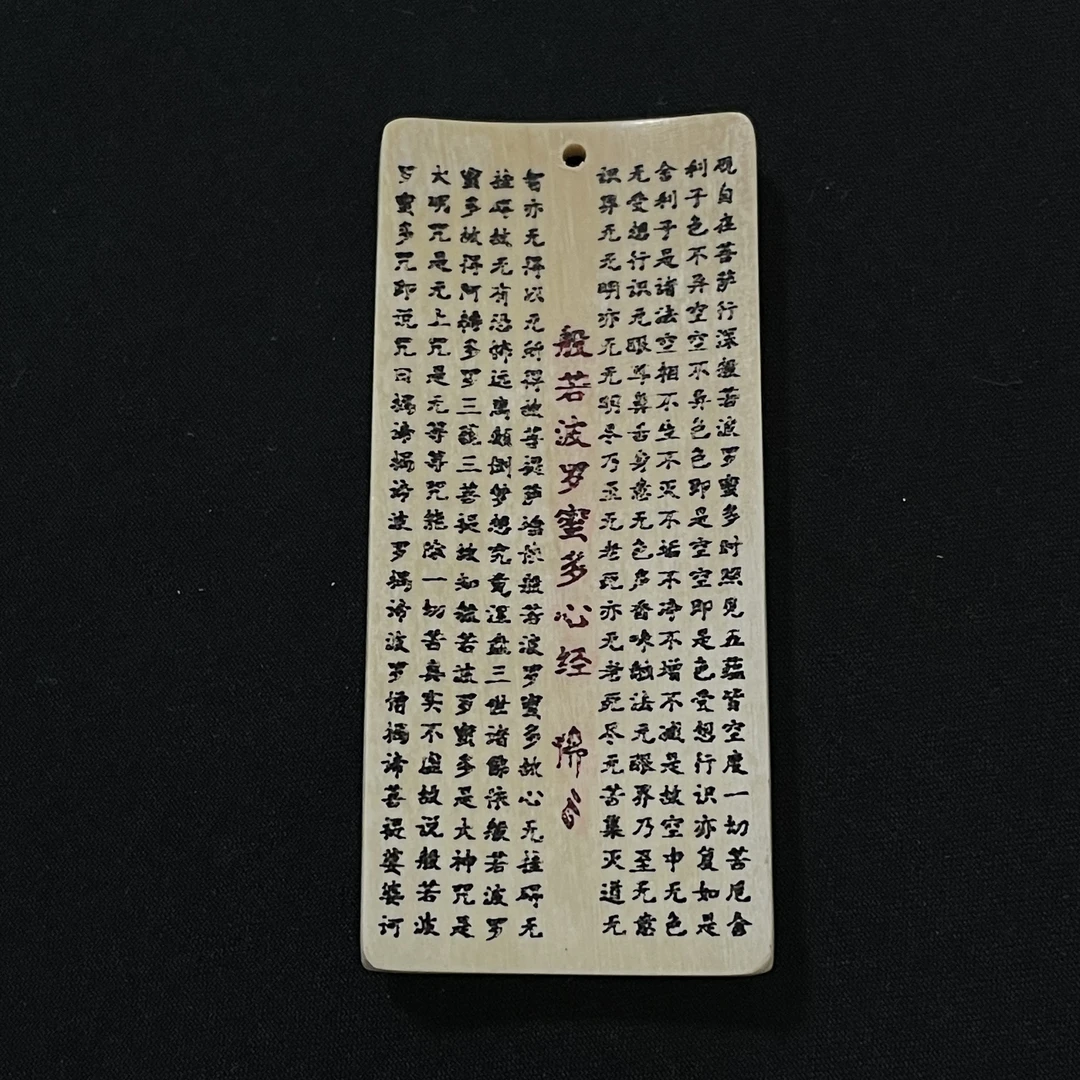 观自在菩萨行深般若波罗蜜多时照见五蕴皆空度一切苦厄舍
利子色不异空空不异色色即是空空即是色受想行识亦复如是
舍利子是诸法空相不生不灭不垢不净不增不减是故空中无色
无受想行识无眼耳鼻舌身意无色声香味触法无眼界乃至无意
识界无无明亦无无明尽乃至无老死亦无老死尽无苦集灭道无
般若波罗蜜多心经 佛
智亦无得以无所得故菩提萨埵依般若波罗蜜多故心无挂碍无
挂碍故无有恐怖远离颠倒梦想究竟涅盘三世诸佛依般若波罗
蜜多故得阿耨多罗三藐三菩提故知般若波罗蜜多是大神咒是
大明咒是无上咒是无等等咒能除一切苦真实不虚故说般若波
罗蜜多咒即说咒曰揭谛揭谛波罗揭谛波罗僧揭谛菩提娑婆诃